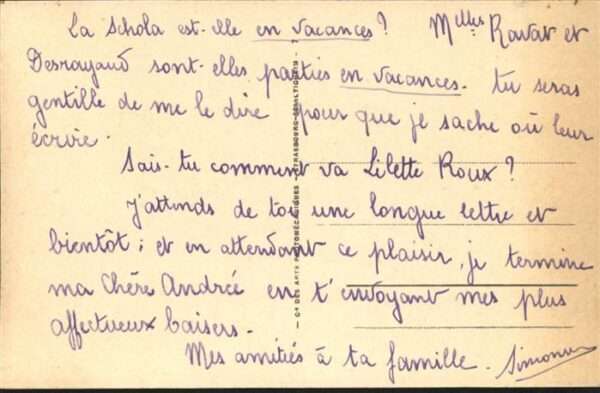 La Schola est-elle en vacances ? Melles Ravat et
Desrayaud sont-elles parties en vacances. tu seras
gentille de me le dire pour que je sache où leur
écrire.
Sais-tu comment va Lilette Roux ?
J'attends de toi une longue lettre et
bientôt ; et en attendant ce plaisir, je termine
ma Chère Andrée en t'envoyant mes plus
affectueux baisers.
Mes amitiés à ta famille. Simone
— Cie DES ARTS PHOTOMÉCANIQUES — STRASBOURG-SCHILTIGHEIM —